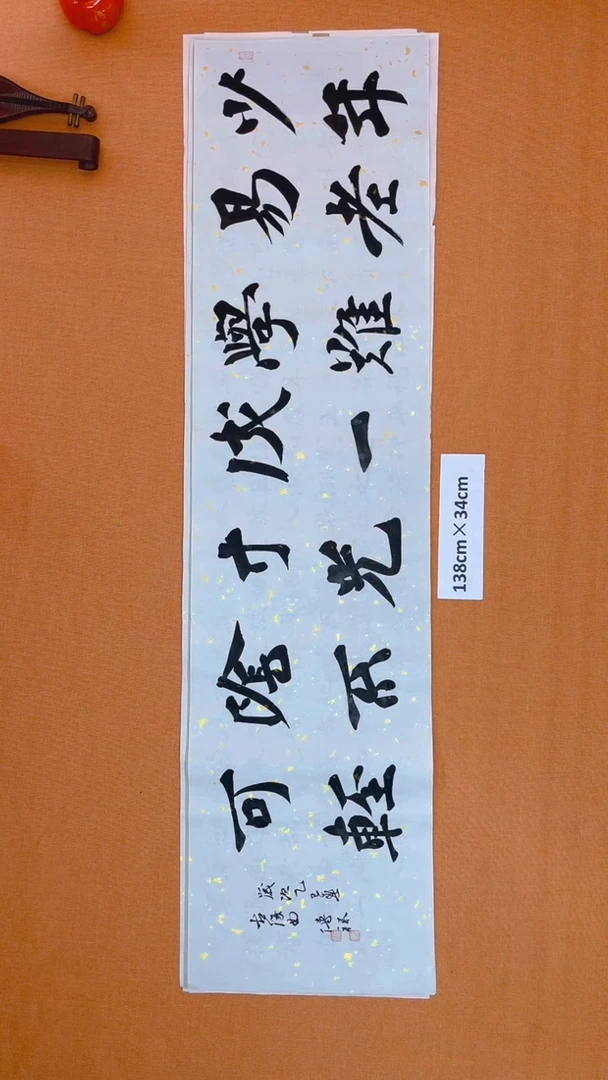 少年
易老
學難
成一
寸光
陰不
可輕
歲次乙巳
138cm×34cm